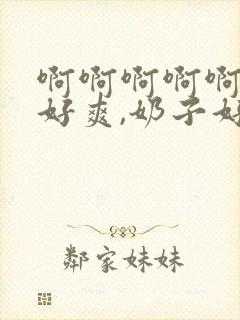 啊啊啊啊啊
好爽,奶子好
鄰家妹妹